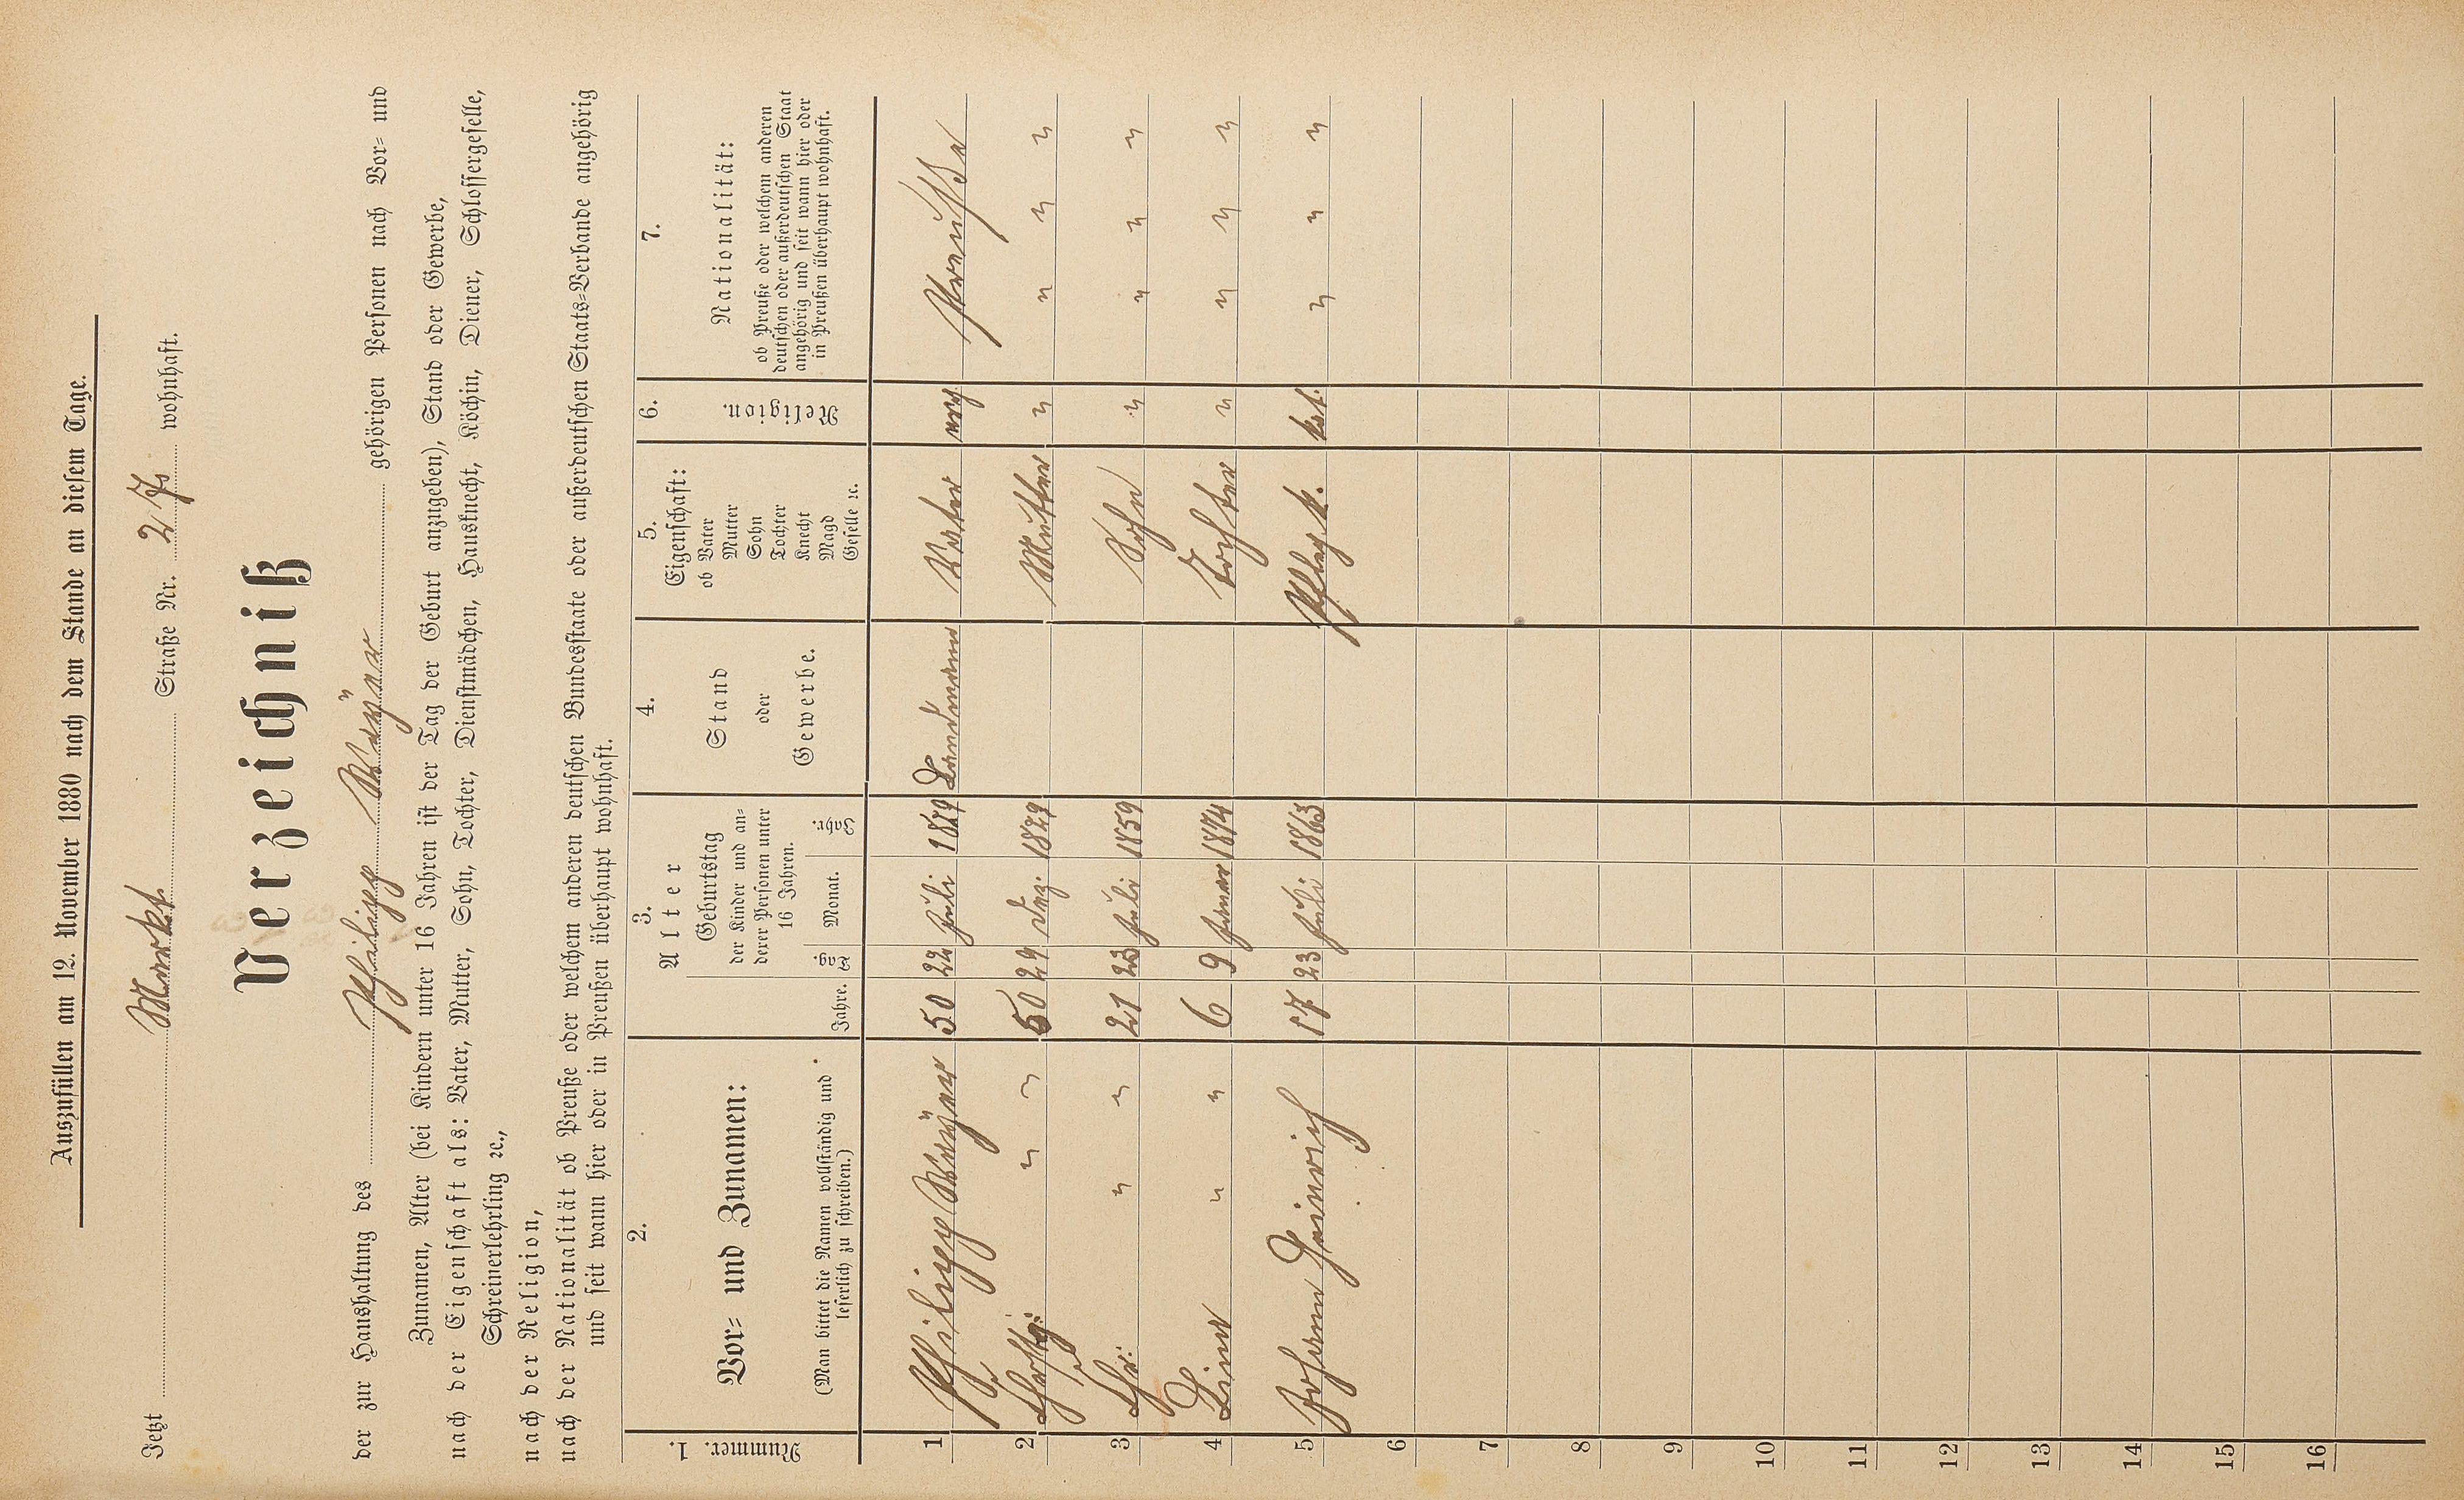 Auszufüllen am 12. November 1880 nach dem Stande an diesem Tage.
Jetzt Markt Straße Nr. 27 wohnhaft.
Verzeichniß
der zur Haushaltung des Philipp Mayer gehörigen Personen nach Vor- und
Zunamen, Alter (bei Kindern unter 16 Jahren ist der Tag der Geburt anzugeben), Stand oder Gewerbe,
nach der Eigenschaft als: Vater, Mutter, Sohn, Tochter, Dienstmädchen, Hausknecht, Köchin, Diener, Schlossergeselle,
Schreinerlehrling ꝛc.,
nach der Religion,
nach der Nationalität ob Preuße oder welchem anderen deutschen Bundesstaate oder außerdeutschen Staats-Verbande angehörig
und seit wann hier oder in Preußen überhaupt wohnhaft.
1. Nummer.
2. Vor- und Zunamen:
(Man bittet die Namen vollständig und
leserlich zu schreiben.)
3. Alter
Jahre.
Geburtstag
der Kinder und an-
derer Personen unter
16 Jahren.
Tag. Monat. Jahr.
4. Stand
oder
Gewerbe.
5. Eigenschaft:
ob Vater
Mutter
Sohn
Tochter
Knecht
Magd
Geselle ꝛc.
6. Religion.
7. Nationalität:
ob Preuße oder welchem anderen
deutschen oder außerdeutschen Staat
angehörig und seit wann hier oder
in Preußen überhaupt wohnhaft.
1 Philipp Mayer 50 22 Juli 1829 Landmann Vater Preuße
2 " " 50 29 Dez. 1829 Mutter " " " "
3 " " 21 23 Juli 1859 Sohn " " " "
4 Lina " " 6 9 Januar 1874 Tochter " " " "
5 Johann Heinrich 17 23 Juli 1863 kat. " " "
6
7
8
9
10
11
12
13
14
15
16